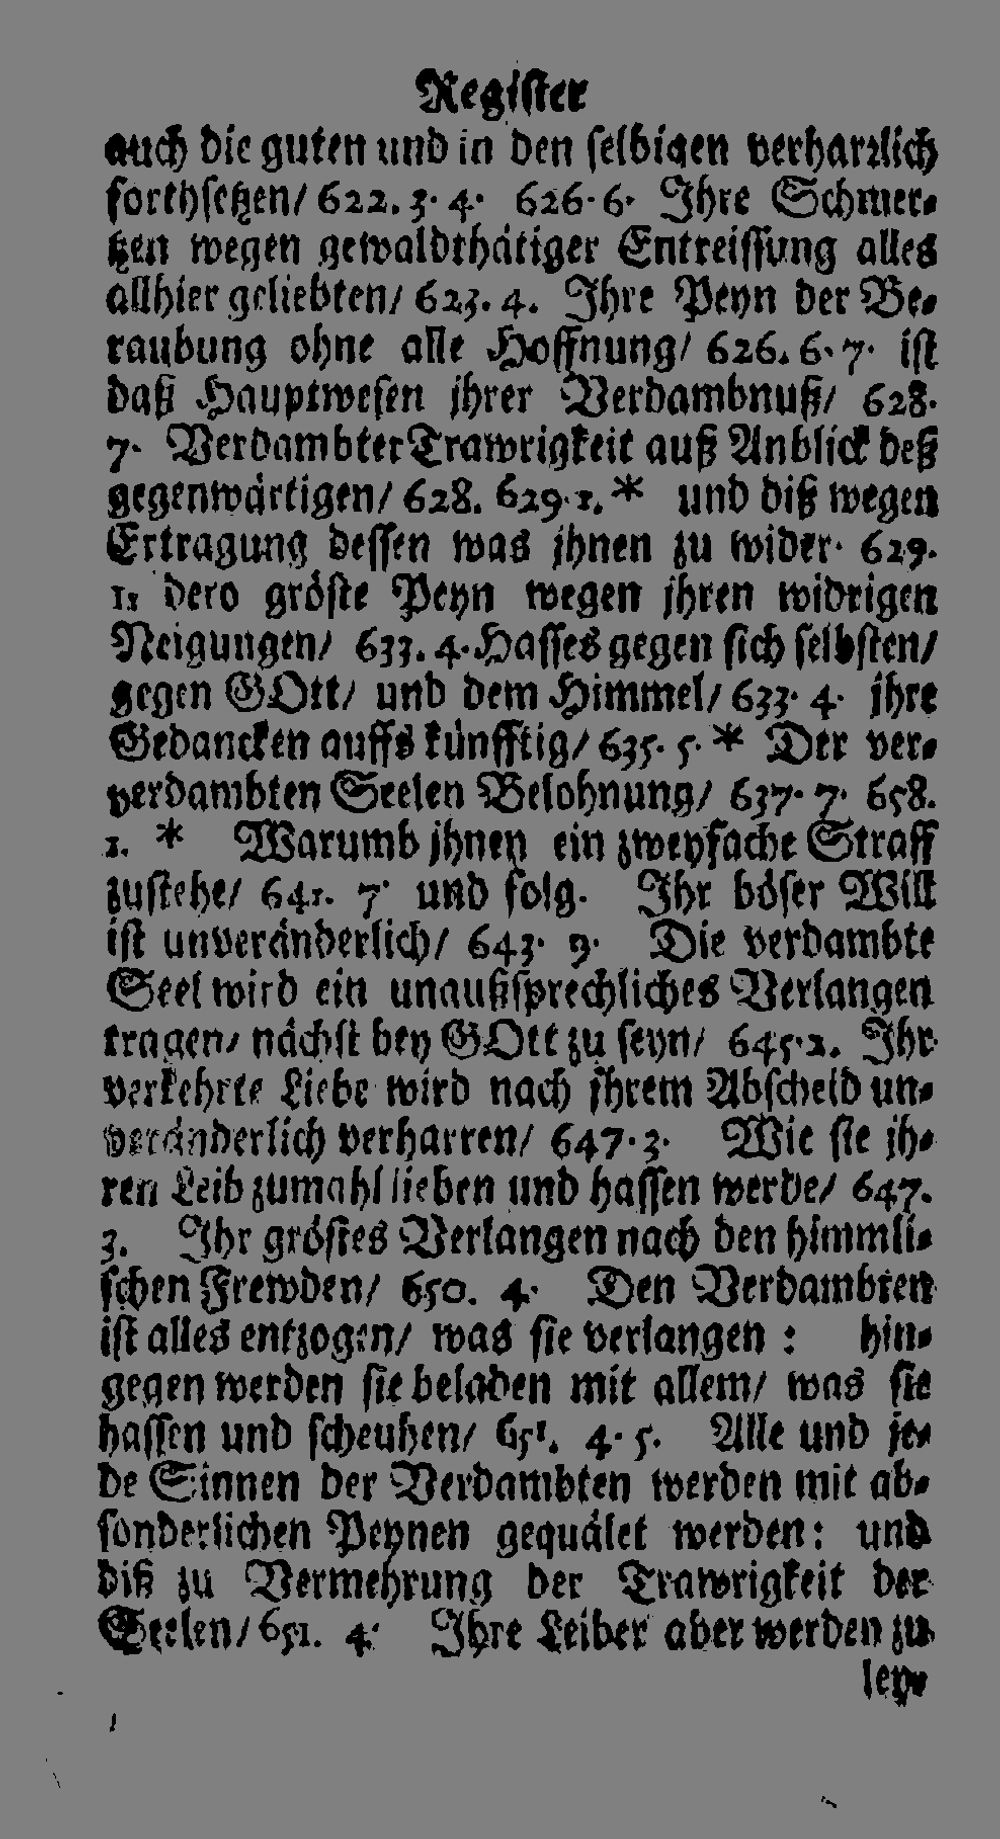 Register
auch die guten und in den selbigen verharrlich
forthsetzen/ 622. 3. 4. 626. 6. Ihre Schmer-
tzen wegen gewaldthätiger Entreissung alles
allhier geliebten/ 623. 4. Ihre Peyn der Be-
raubung ohne alle Hoffnung/ 626. 6. 7. ist
daß Hauptwesen jhrer Verdambnuß/ 628.
7. Verdambter Trawrigkeit auß Anblick deß
gegenwärtigen/ 628. 629. 1. * und diß wegen
Ertragung dessen was jhnen zu wider. 629.
1. dero gröste Peyn wegen jhren widrigen
Neigungen/ 633. 4. Hasses gegen sich selbsten/
gegen GOtt/ und dem Himmel/ 633. 4. jhre
Gedancken auffs künfftig/ 635. 5. * Der ver-
verdambten Seelen Belohnung/ 637. 7. 658.
1. * Warumb jhnen ein zweyfache Straff
zustehe/ 641. 7. und folg. Ihr böser Will
ist unveränderlich/ 643. 9. Die verdambte
Seel wird ein unaußsprechliches Verlangen
tragen/ nächst bey GOtt zu seyn/ 645. 2. Ihr
verkehrte Liebe wird nach jhrem Abscheid un-
veränderlich verharren/ 647. 3. Wie sie jh-
ren Leib zumahl lieben und hassen werde/ 647.
3. Ihr gröstes Verlangen nach den himmli-
schen Frewden/ 650. 4. Den Verdambten
ist alles entzogen/ was sie verlangen : hin-
gegen werden sie beladen mit allem/ was sie
hassen und scheuhen/ 651. 4. 5. Alle und je-
de Sinnen der Verdambten werden mit ab-
sonderlichen Peynen gequälet werden: und
diß zu Vermehrung der Trawrigkeit der
Seelen/ 651. 4. Ihre Leiber aber werden zu
ley-